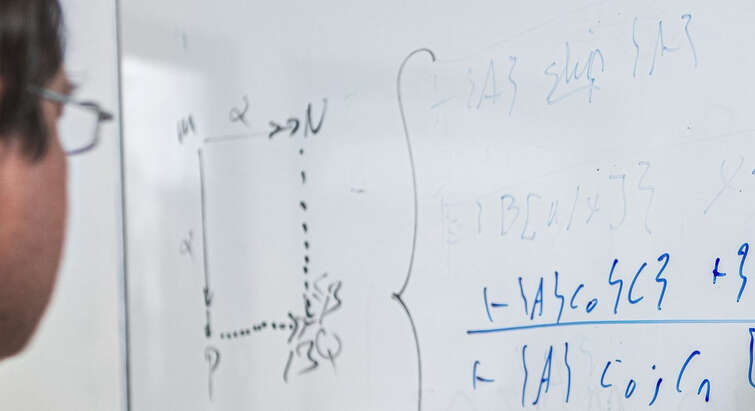 M α → N
α
P Q
⊢ {A} skip {A}
⊢ {B[a/x]} x
⊢ {A} c₀ {C} ⊢ {
⊢ {A} c₀; c₁ {